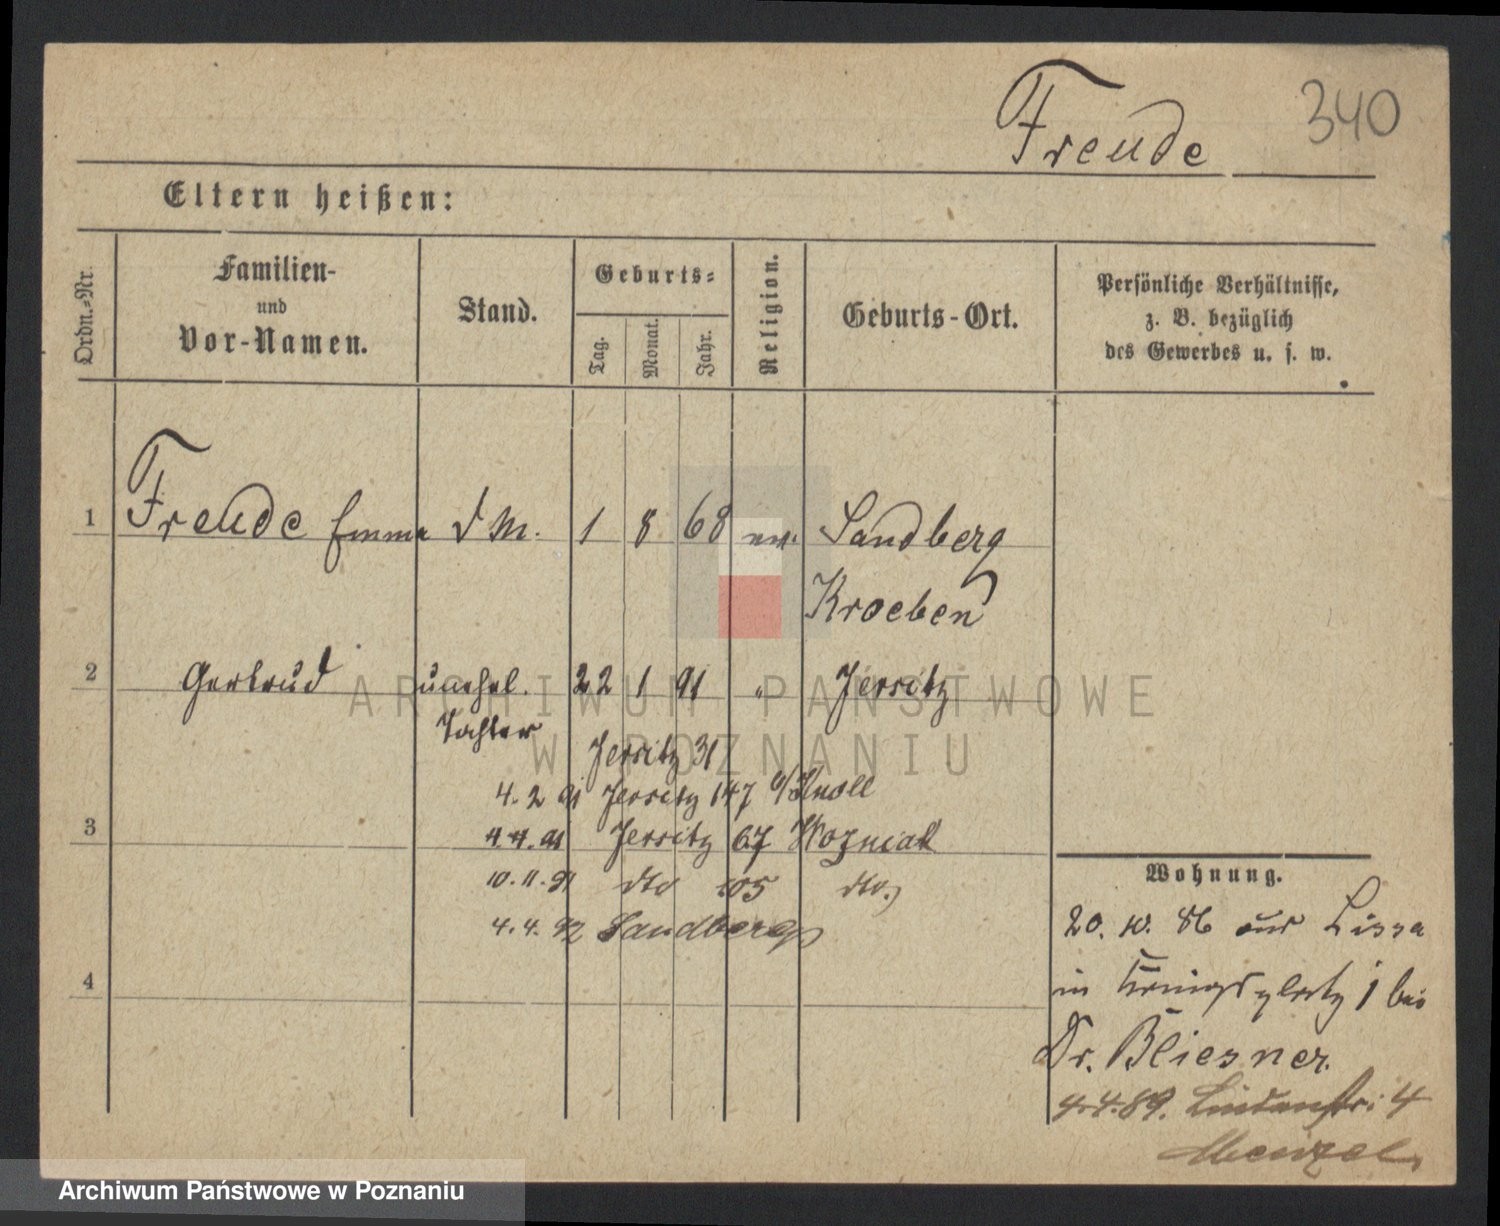 340
Freude
Eltern heißen:
Ordn.-Nr.
Familien-
und
Vor-Namen.
Stand.
Geburts-
Tag.
Monat.
Jahr.
Religion.
Geburts-Ort.
Persönliche Verhältnisse,
z. B. bezüglich
des Gewerbes u. s. w.
1 Freude Emma d M. 1 8 68 ev. Sandberg
Kroeben
2 Gertrud unehel. 22 1 91 " Jersitz
Tochter
Jersitz 31
4. 2 91 Jersitz 147 b/ Knoll
3
4. 4. 91 Jersitz 67 Wozniak
10. 11. 91 dto 105 dto.
4. 4. 92 Sandberg
4
Wohnung.
20. 10. 86 aus Lissa
in Königsplatz 1 bei
Dr. Bliesner.
4. 4. 89. Lindenstr. 4
Menzel
ARCHIWUM PAŃSTWOWE
W POZNANIU
Archiwum Państwowe w Poznaniu